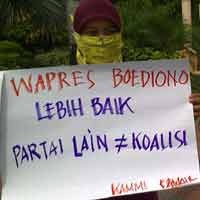 WAPRES BOEDIONO
LEBIH BAIK
PARTAI LAIN ≠ KOALISI
KAMMI